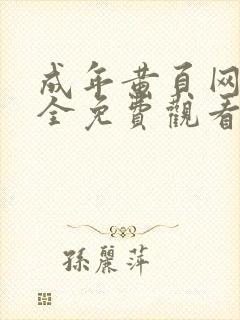 成年黃頁网
全免費觀看
孫麗萍